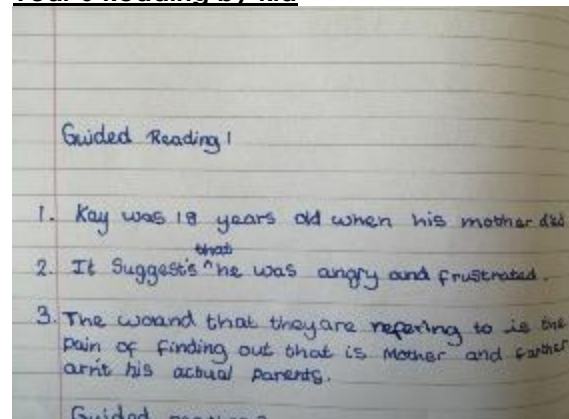 Guided Reading 1
1. Kay was 18 years old when his mother died
that
2. It Suggest's ^ he was angry and frustrated.
3. The wound that they are refering to is the
pain of finding out that is Mother and farther
arn't his actual parents.
Guided